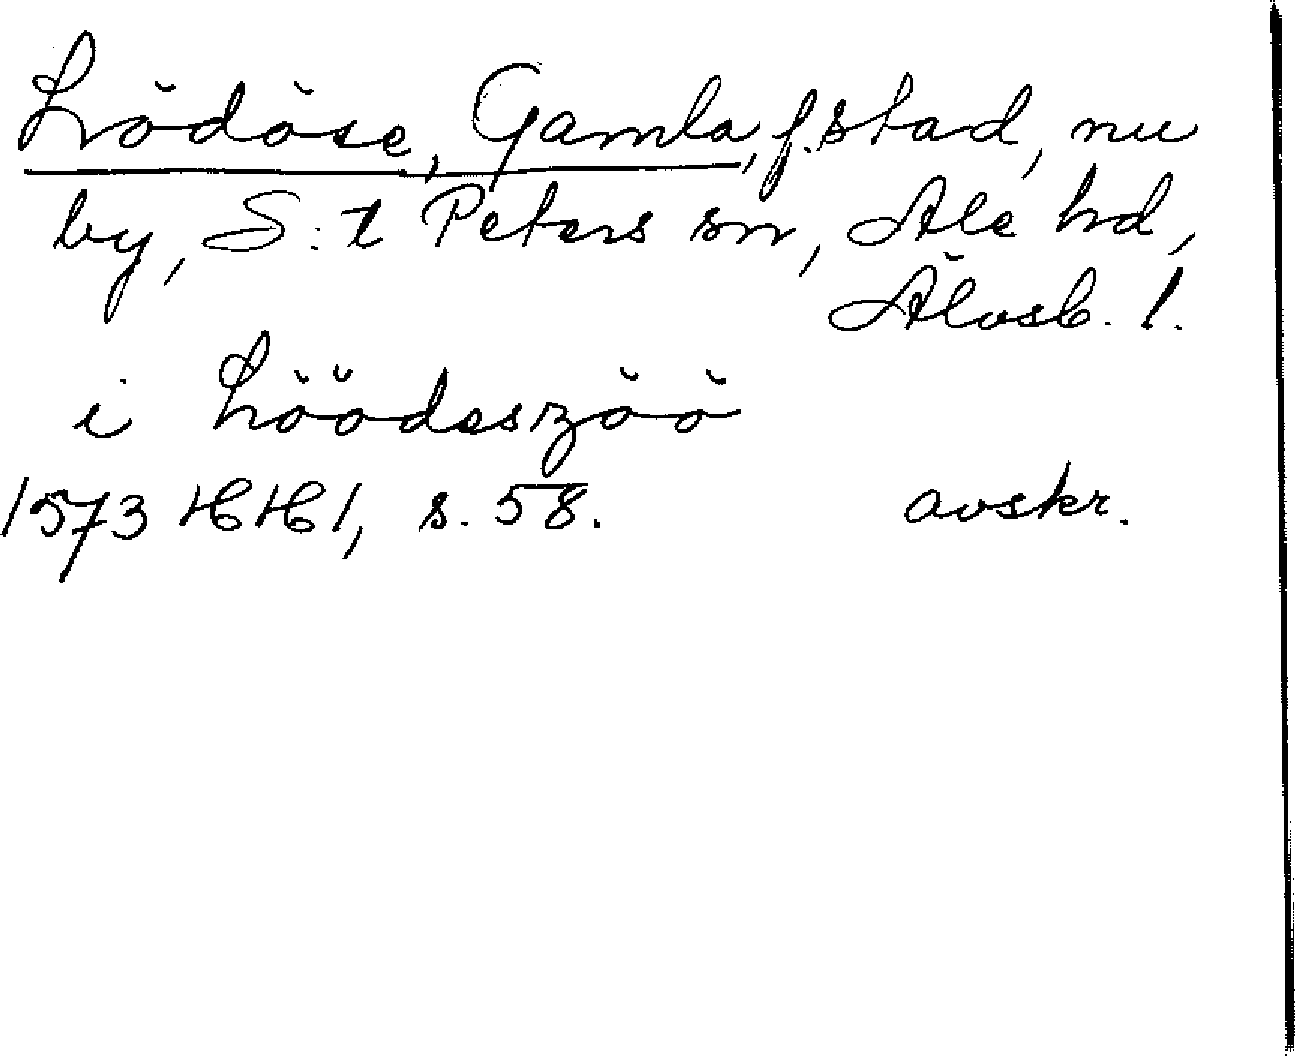 Lödöse, Gamla, f. stad, nu
by, S:t Peters sn, Ale hd,
Älvsb. l.
i Löödeszöö
1573 HH 1, s. 58. avskr.